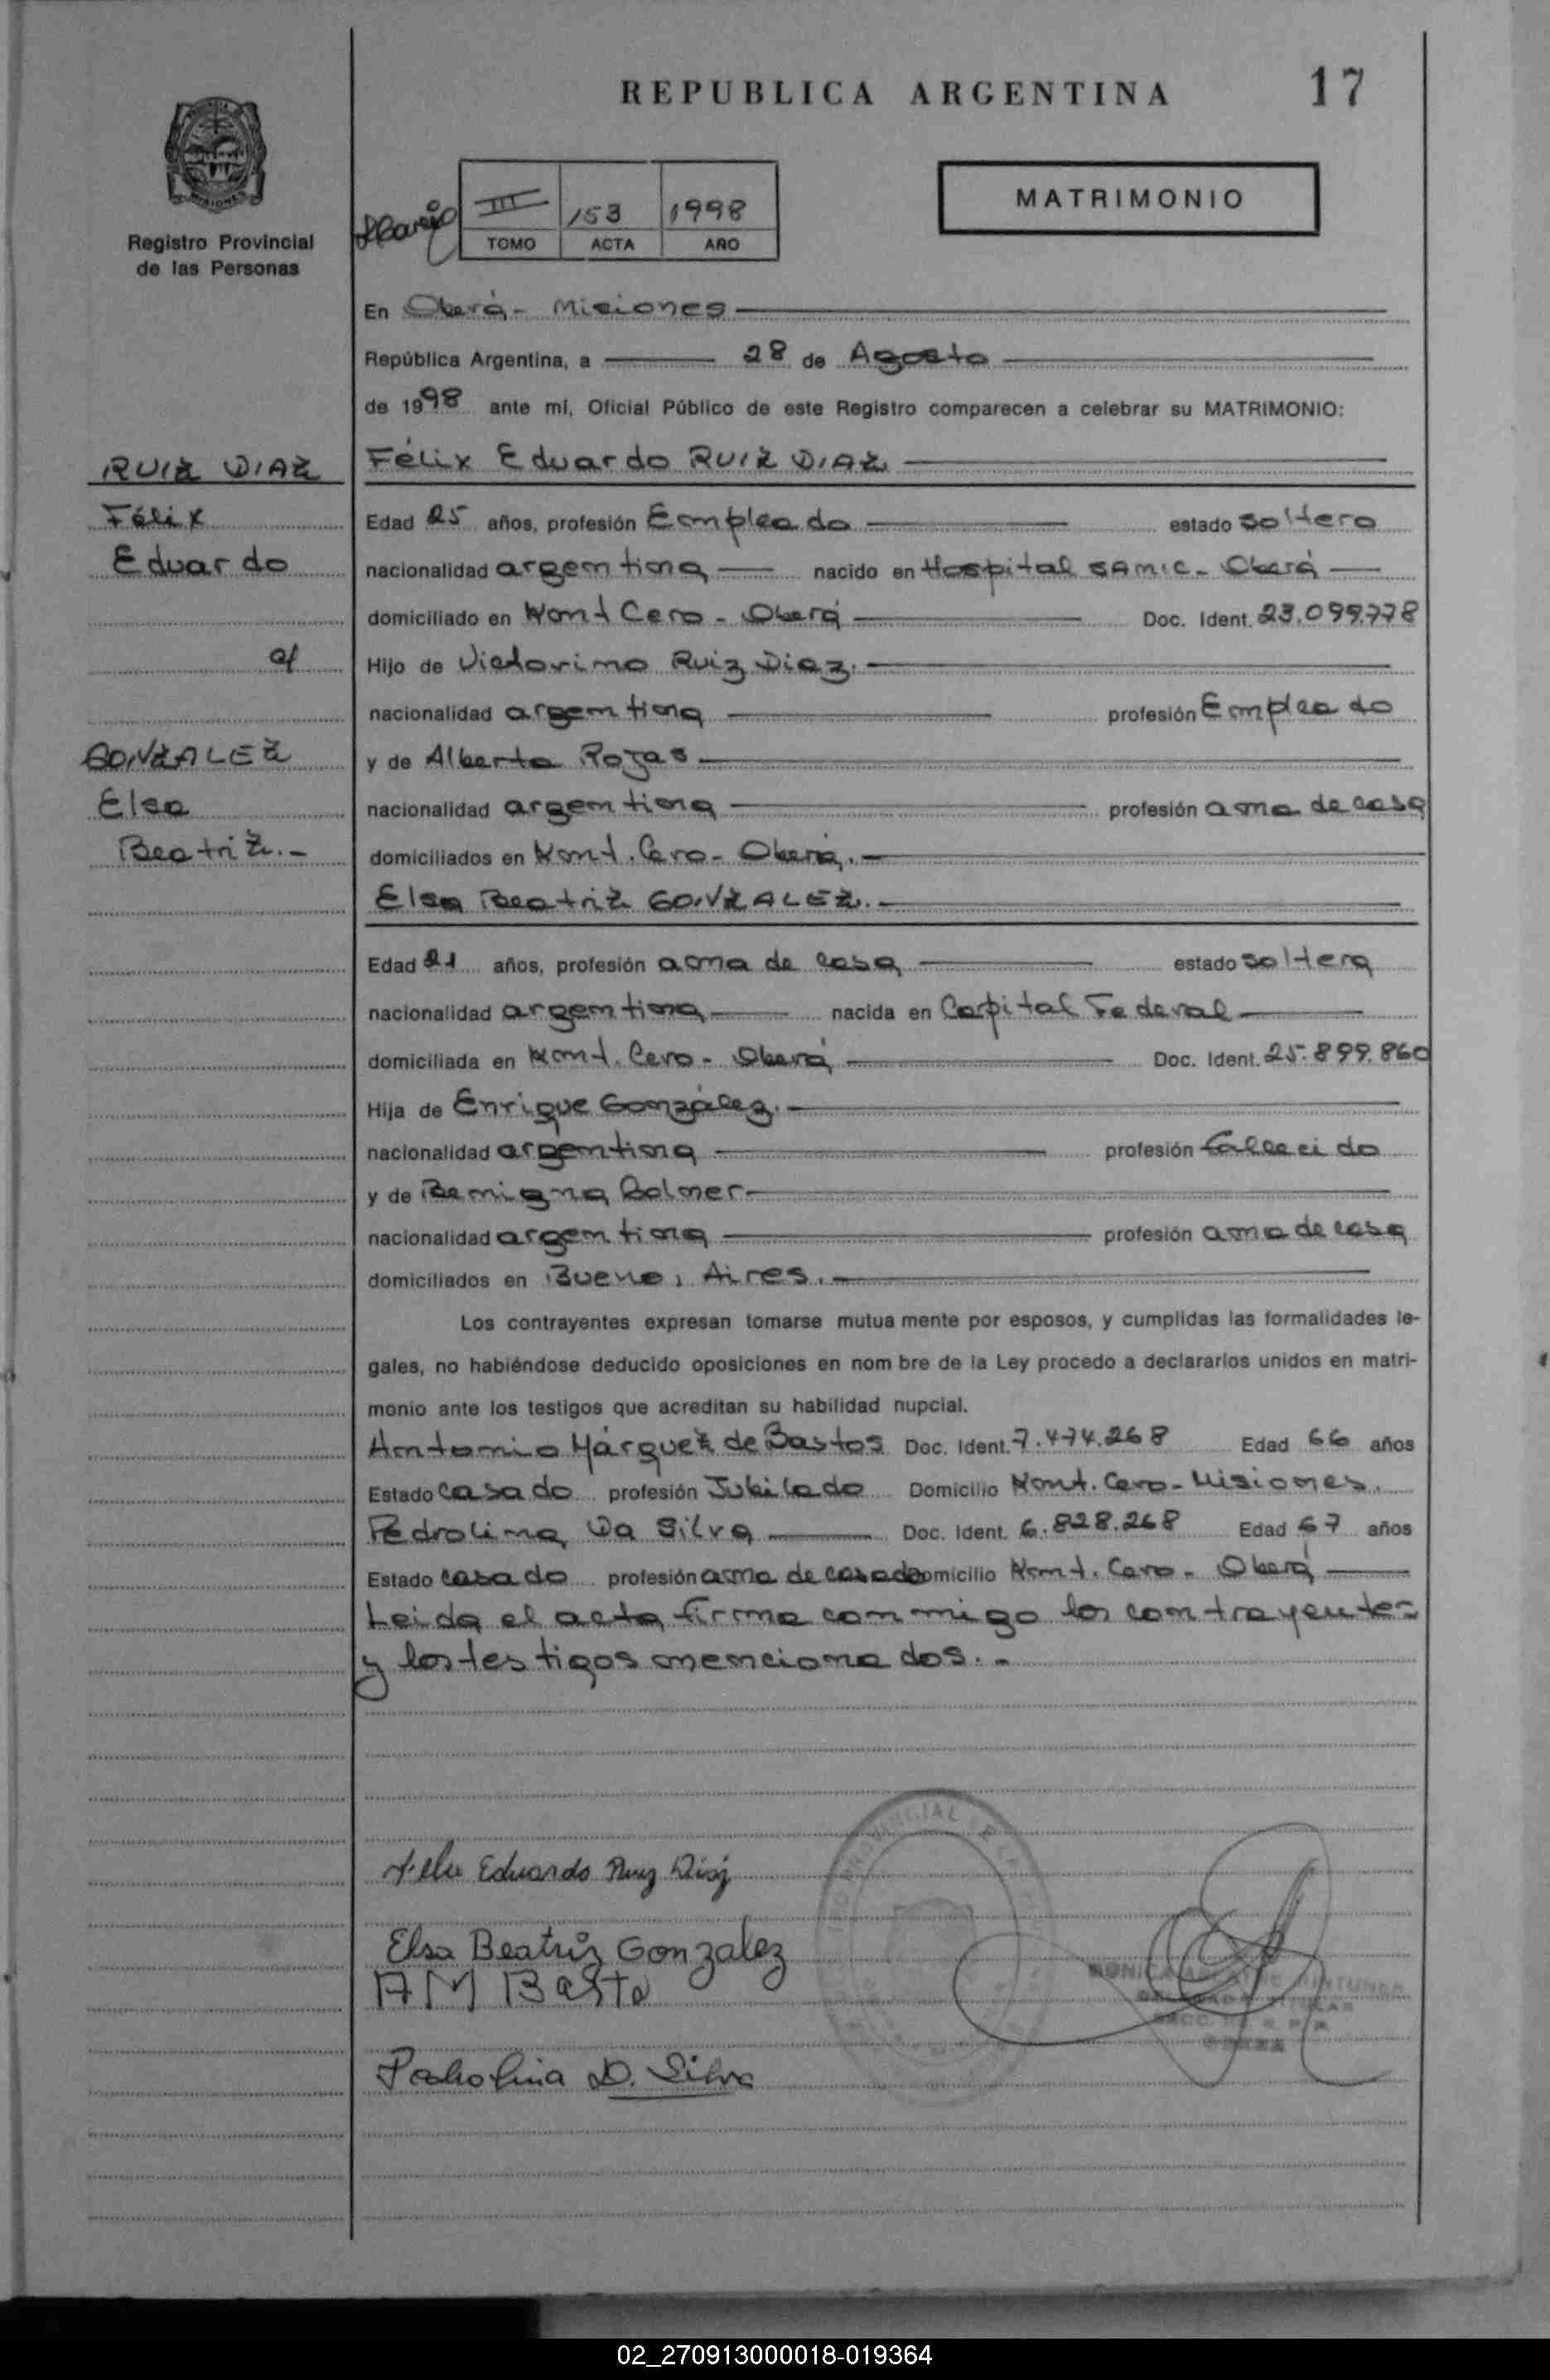 REPUBLICA ARGENTINA 17
MATRIMONIO
III 153 1998
TOMO ACTA AÑO
Registro Provincial
de las Personas
En Oberá - Misiones
República Argentina, a 28 de Agosto
de 1998 ante mí, Oficial Público de este Registro comparecen a celebrar su MATRIMONIO:
RUIZ DIAZ
Félix
Eduardo
c/
GONZALEZ
Elsa
Beatriz.-
Félix Eduardo RUIZ DIAZ
Edad 25 años, profesión Empleado estado soltero
nacionalidad argentina nacido en Hospital SAMIC - Oberá
domiciliado en Mont Cero - Oberá Doc. Ident. 23.099.778
Hijo de Victorino Ruiz Diaz.
nacionalidad argentina profesión Empleado
y de Alberta Rozas
nacionalidad argentina profesión ama de casa
domiciliados en Mont. Cero - Oberá.
Elsa Beatriz GONZALEZ.
Edad 21 años, profesión ama de casa estado soltera
nacionalidad argentina nacida en Capital Federal
domiciliada en Mont. Cero - Oberá Doc. Ident. 25.899.860
Hija de Enrique González.
nacionalidad argentina profesión fallecido
y de Benigna Bolner
nacionalidad argentina profesión ama de casa
domiciliados en Buenos Aires.
Los contrayentes expresan tomarse mutua mente por esposos, y cumplidas las formalidades le-
gales, no habiéndose deducido oposiciones en nom bre de la Ley procedo a declararlos unidos en matri-
monio ante los testigos que acreditan su habilidad nupcial.
Antonio Márquez de Bastos Doc. Ident. 7.474.268 Edad 66 años
Estado casado profesión Jubilado Domicilio Mont. Cero - Misiones.
Pedrolina Da Silva Doc. Ident. 6.828.268 Edad 67 años
Estado casado profesión ama de casa Domicilio Mont. Cero - Oberá
Leida el acta firma conmigo los contrayentes
y los testigos mencionados.-
Felix Eduardo Ruiz Diaz
Elsa Beatriz Gonzalez
A M Basto
Pedrolina D. Silva
02_270913000018-019364